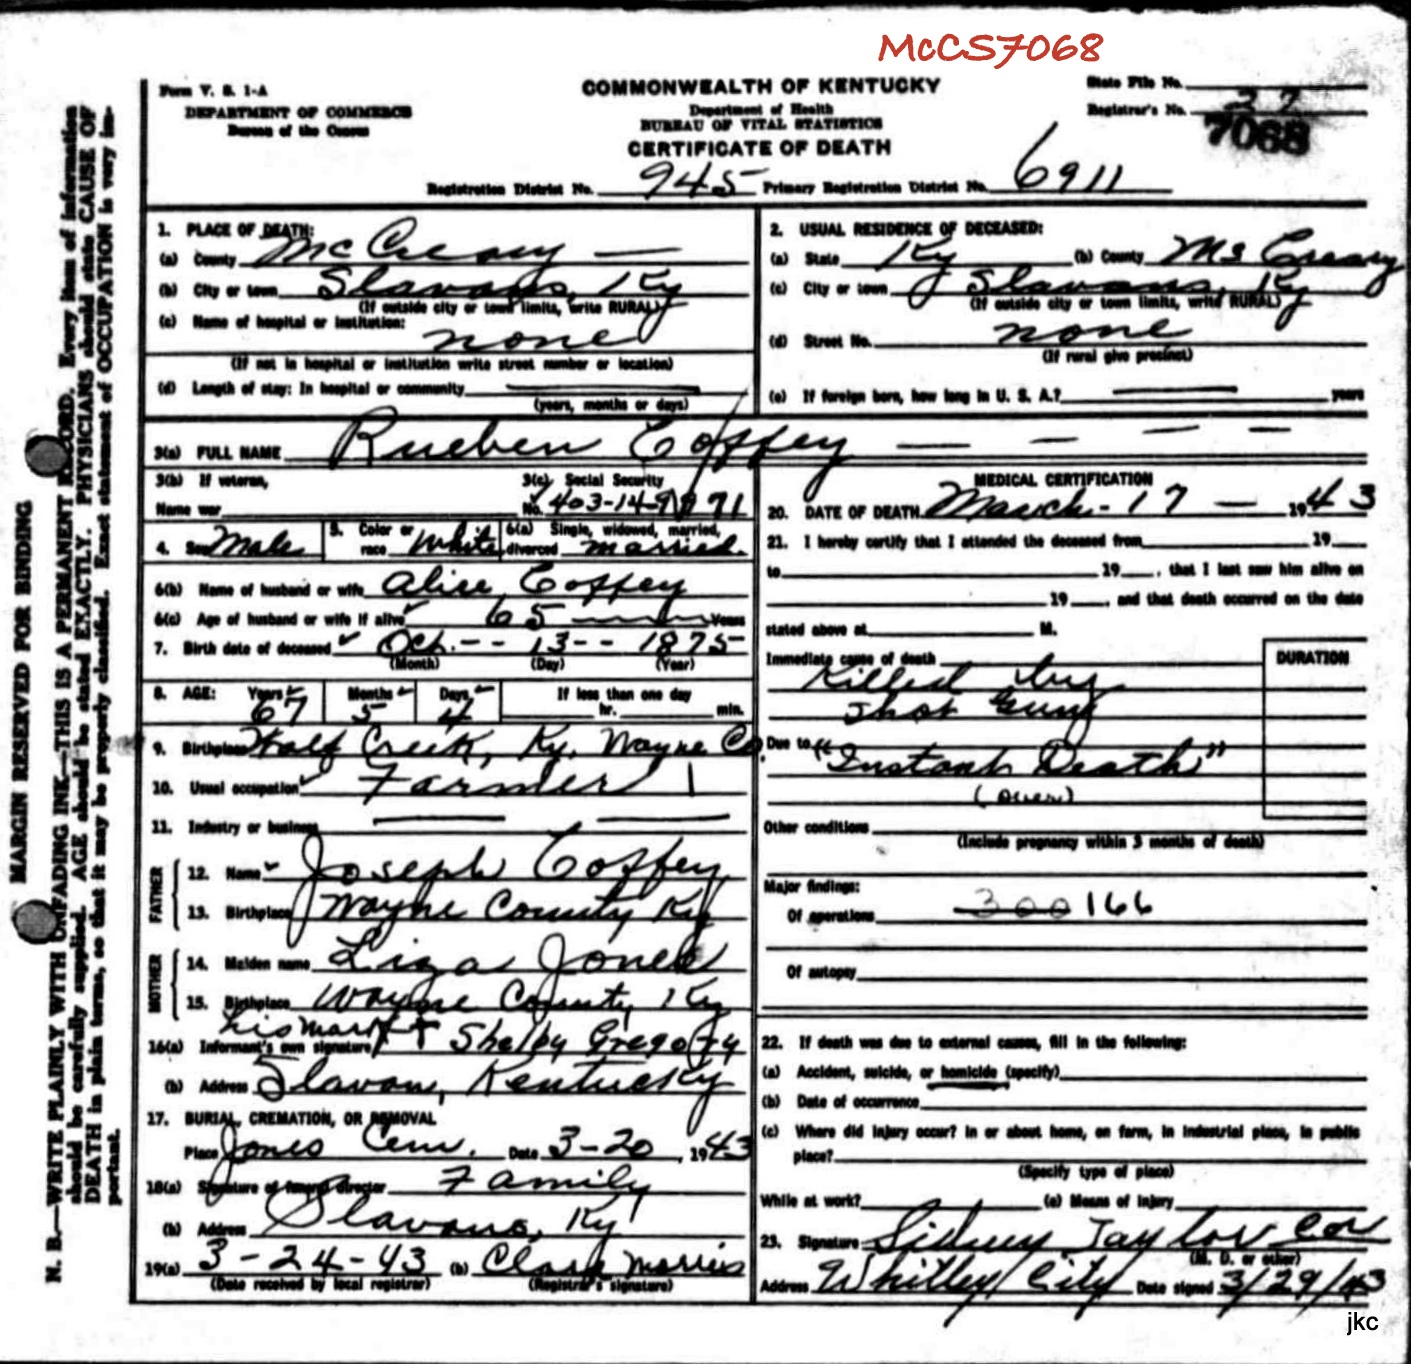 McCS7068
Form V. S. 1-A
DEPARTMENT OF COMMERCE
Bureau of the Census
COMMONWEALTH OF KENTUCKY
Department of Health
BUREAU OF VITAL STATISTICS
CERTIFICATE OF DEATH
State File No.
Registrar's No. 27
7068
Registration District No. 945 Primary Registration District No. 6911
MARGIN RESERVED FOR BINDING
N. B.—WRITE PLAINLY WITH UNFADING INK—THIS IS A PERMANENT RECORD. Every item of information
should be carefully supplied. AGE should be stated EXACTLY. PHYSICIANS should state CAUSE OF
DEATH in plain terms, so that it may be properly classified. Exact statement of OCCUPATION is very im-
portant.
1. PLACE OF DEATH:
(a) County McCreary
(b) City or town Slavans, Ky
(If outside city or town limits, write RURAL)
(c) Name of hospital or institution:
none
(If not in hospital or institution write street number or location)
(d) Length of stay: In hospital or community
(years, months or days)
2. USUAL RESIDENCE OF DECEASED:
(a) State Ky (b) County McCreary
(c) City or town Slavans, Ky
(If outside city or town limits, write RURAL)
(d) Street No. none
(If rural give precinct)
(e) If foreign born, how long in U. S. A.? years
3(a) FULL NAME Rueben Coffey
3(b) If veteran,
Name war
3(c) Social Security
No. 403-14-9971
4. Sex Male 5. Color or race White 6(a) Single, widowed, married, divorced married.
6(b) Name of husband or wife Alice Coffey
6(c) Age of husband or wife if alive 65 Years
7. Birth date of deceased Oct. -- 13 -- 1875
(Month) (Day) (Year)
8. AGE: Years 67 Months 5 Days 4 If less than one day
hr. min.
9. Birthplace Wolf Creek, Ky, Wayne Co.
10. Usual occupation Farmer
11. Industry or business
FATHER
12. Name Joseph Coffey
13. Birthplace Wayne County Ky
MOTHER
14. Maiden name Liza Jones
15. Birthplace Wayne County, Ky
his mark +
16(a) Informant's own signature Shelby Gregory
(b) Address Slavans, Kentucky
17. BURIAL, CREMATION, OR REMOVAL
Place Jones Cem. Date 3-20, 1943
18(a) Signature of funeral director Family
(b) Address Slavans, Ky
19(a) 3-24-43 (b) Clara Morris
(Date received by local registrar) (Registrar's signature)
MEDICAL CERTIFICATION
20. DATE OF DEATH March - 17 - 1943
21. I hereby certify that I attended the deceased from 19
to 19, that I last saw him alive on
19, and that death occurred on the date
stated above at M.
Immediate cause of death
DURATION
Killed by
shot gun
Due to "Instant Death"
(over)
Other conditions
(Include pregnancy within 3 months of death)
Major findings:
Of operations 300 166
Of autopsy
22. If death was due to external causes, fill in the following:
(a) Accident, suicide, or homicide (specify)
(b) Date of occurrence
(c) Where did injury occur? In or about home, on farm, in industrial place, in public
place?
(Specify type of place)
While at work? (e) Means of injury
23. Signature Sidney Taylor Cor
(M. D. or other)
Address Whitley City Date signed 3/29/43
jkc